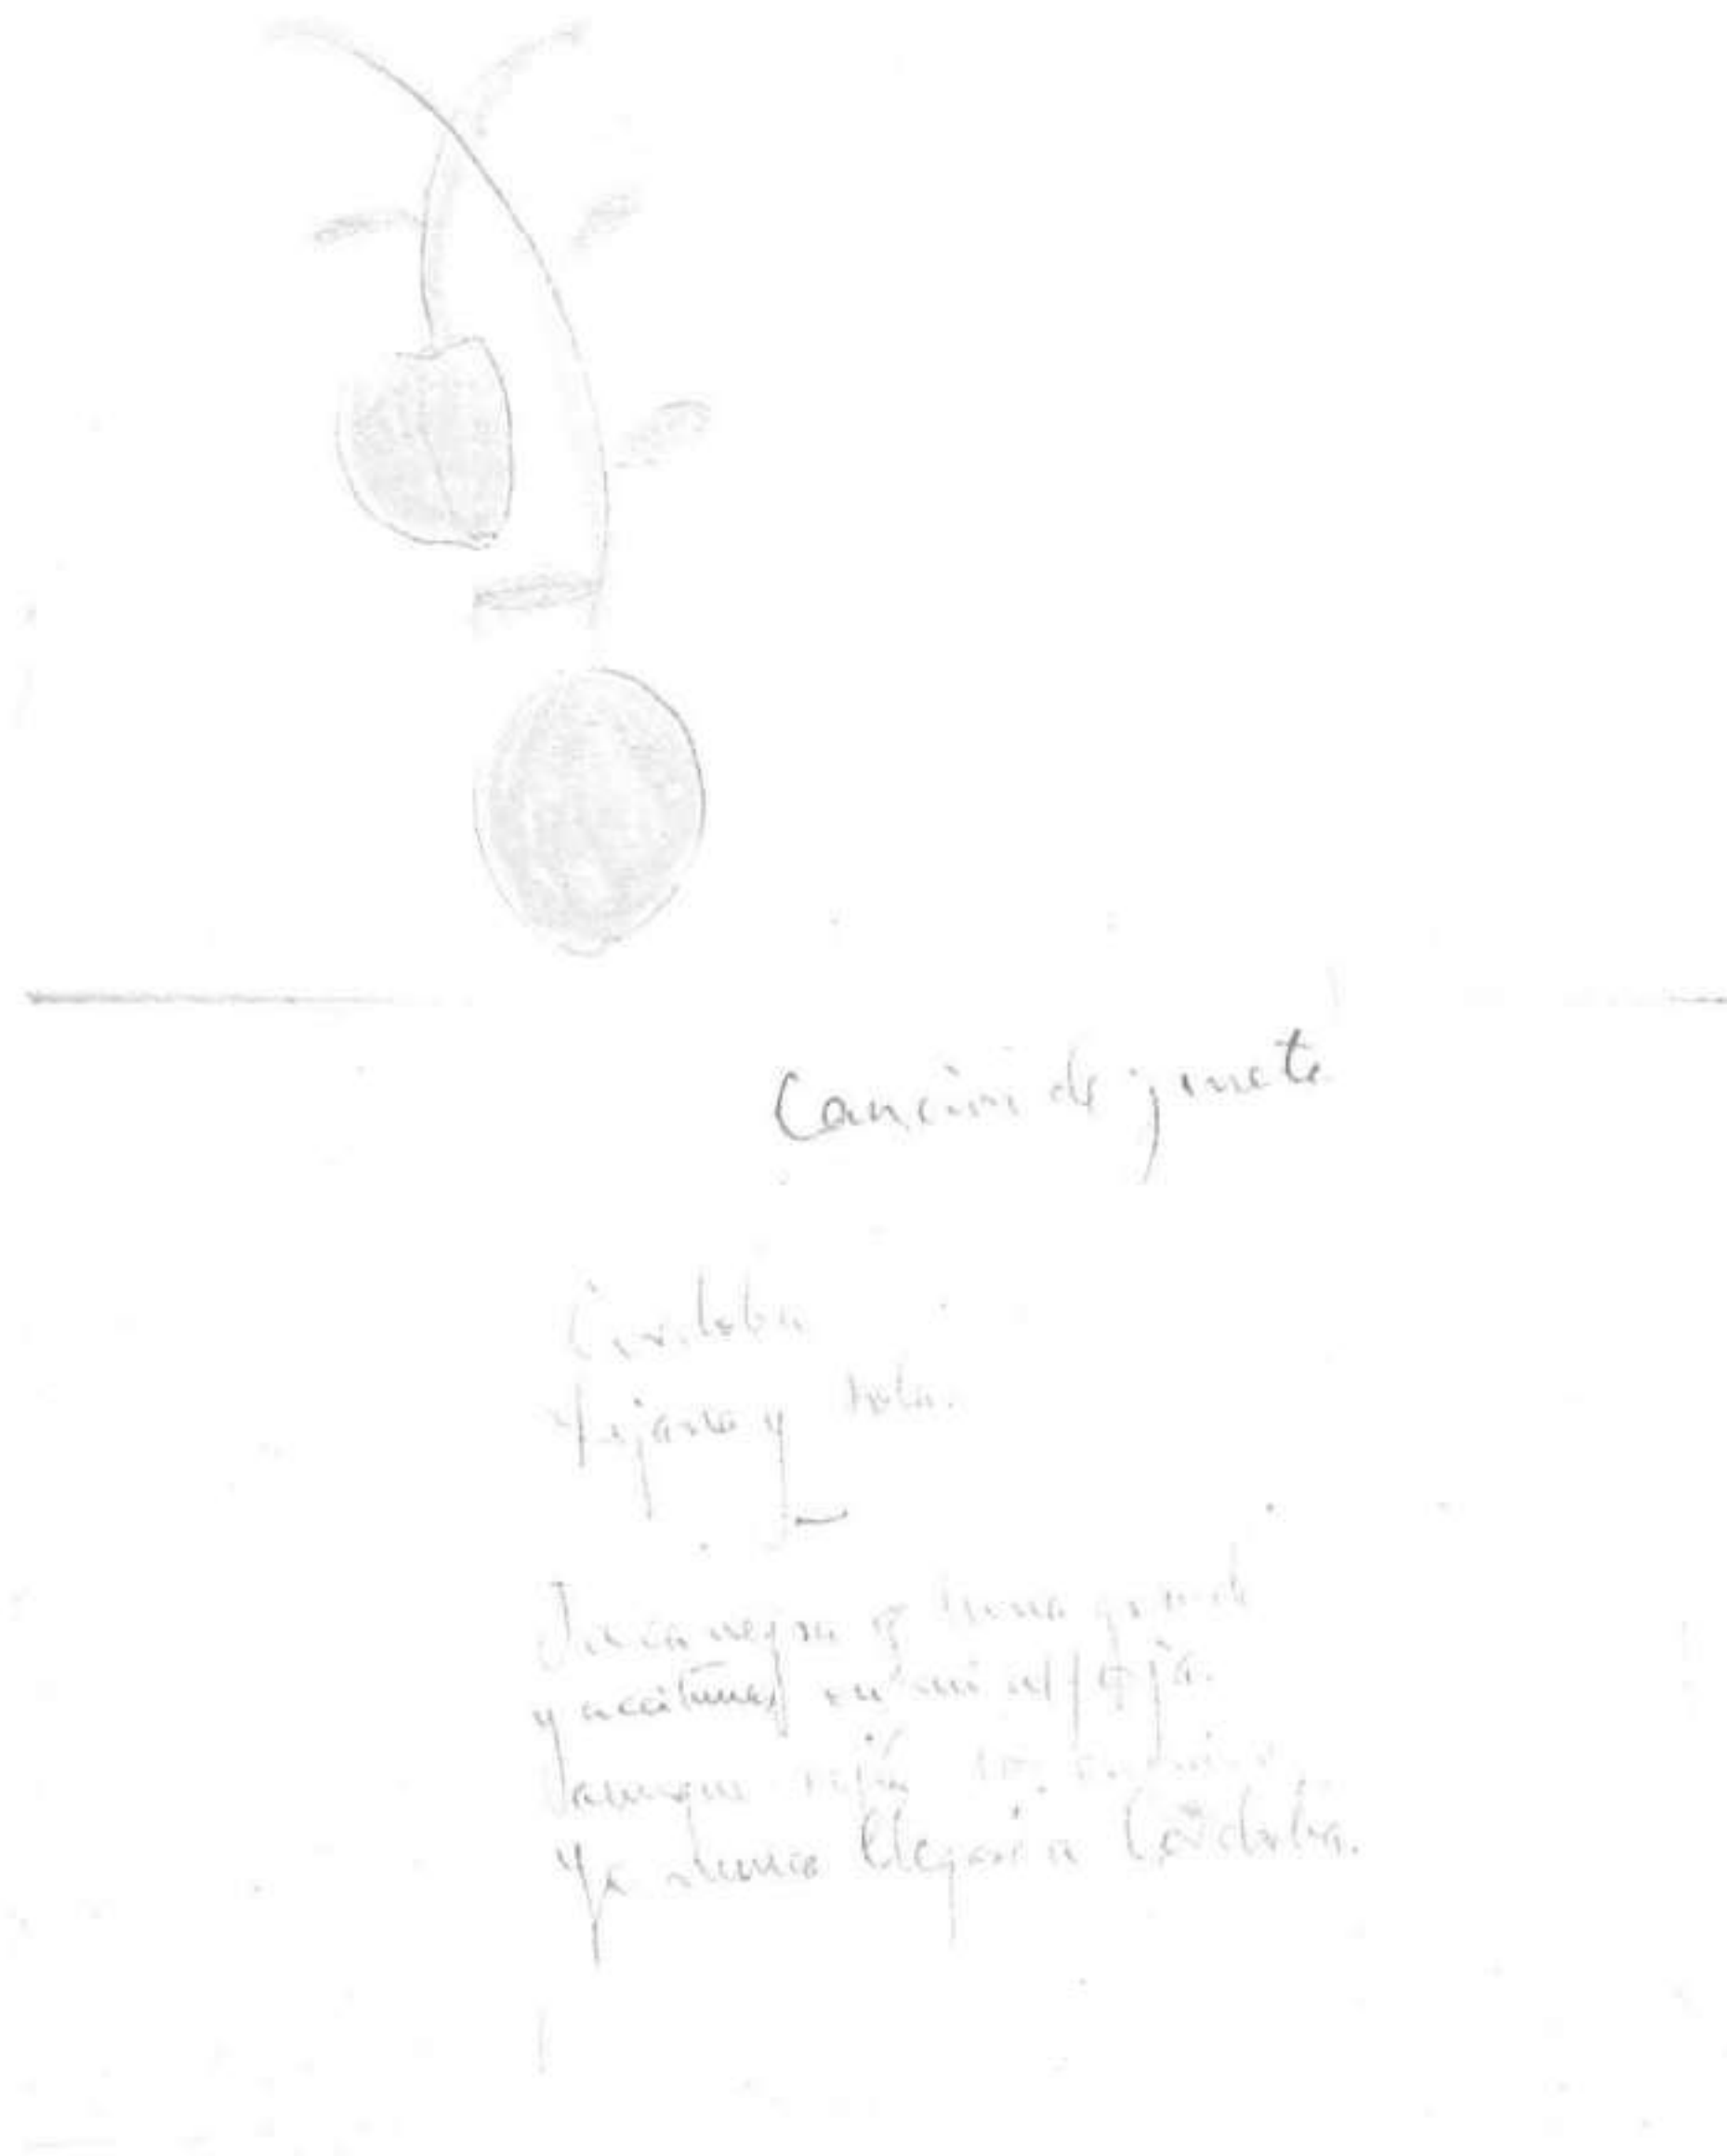 Canción de jinete
Córdoba
Lejana y sola.
Jaca negra y luna grande
y aceitunas en mi alforja.
aunque sepa los caminos
Yo nunca llegaré a Córdoba.